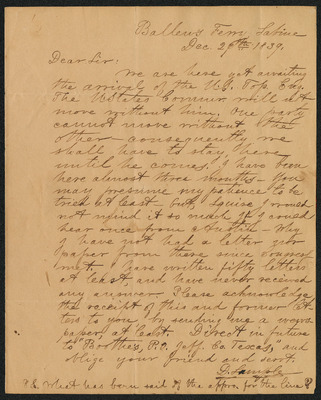 Ballews Fery, Sabine
Dec 29th 1839.
Dear Sir.
We are here yet awaiting
the arrival of the U.S. Top. Eng.
The U States Commr will not
move without him. One party
cannot move without the
other — consequently we
shall have to stay here
until he comes. I have been
here almost three months — you
may presume my patience to be
tried at least — but, I would
not mind it so much if I could
hear once from Austin — Why
I have not had a letter nor
paper from there since
I have written fifty letters
at least, and have never received
any answer — Please acknowledge
the receipt of this and former let-
ters to you by sending me a
paper, at last. Direct in future
to "Boothe's, P.O. Jeff. Co. Texas," and
oblige your friend and servt.
P.S. What has been said of the appro. for the line?